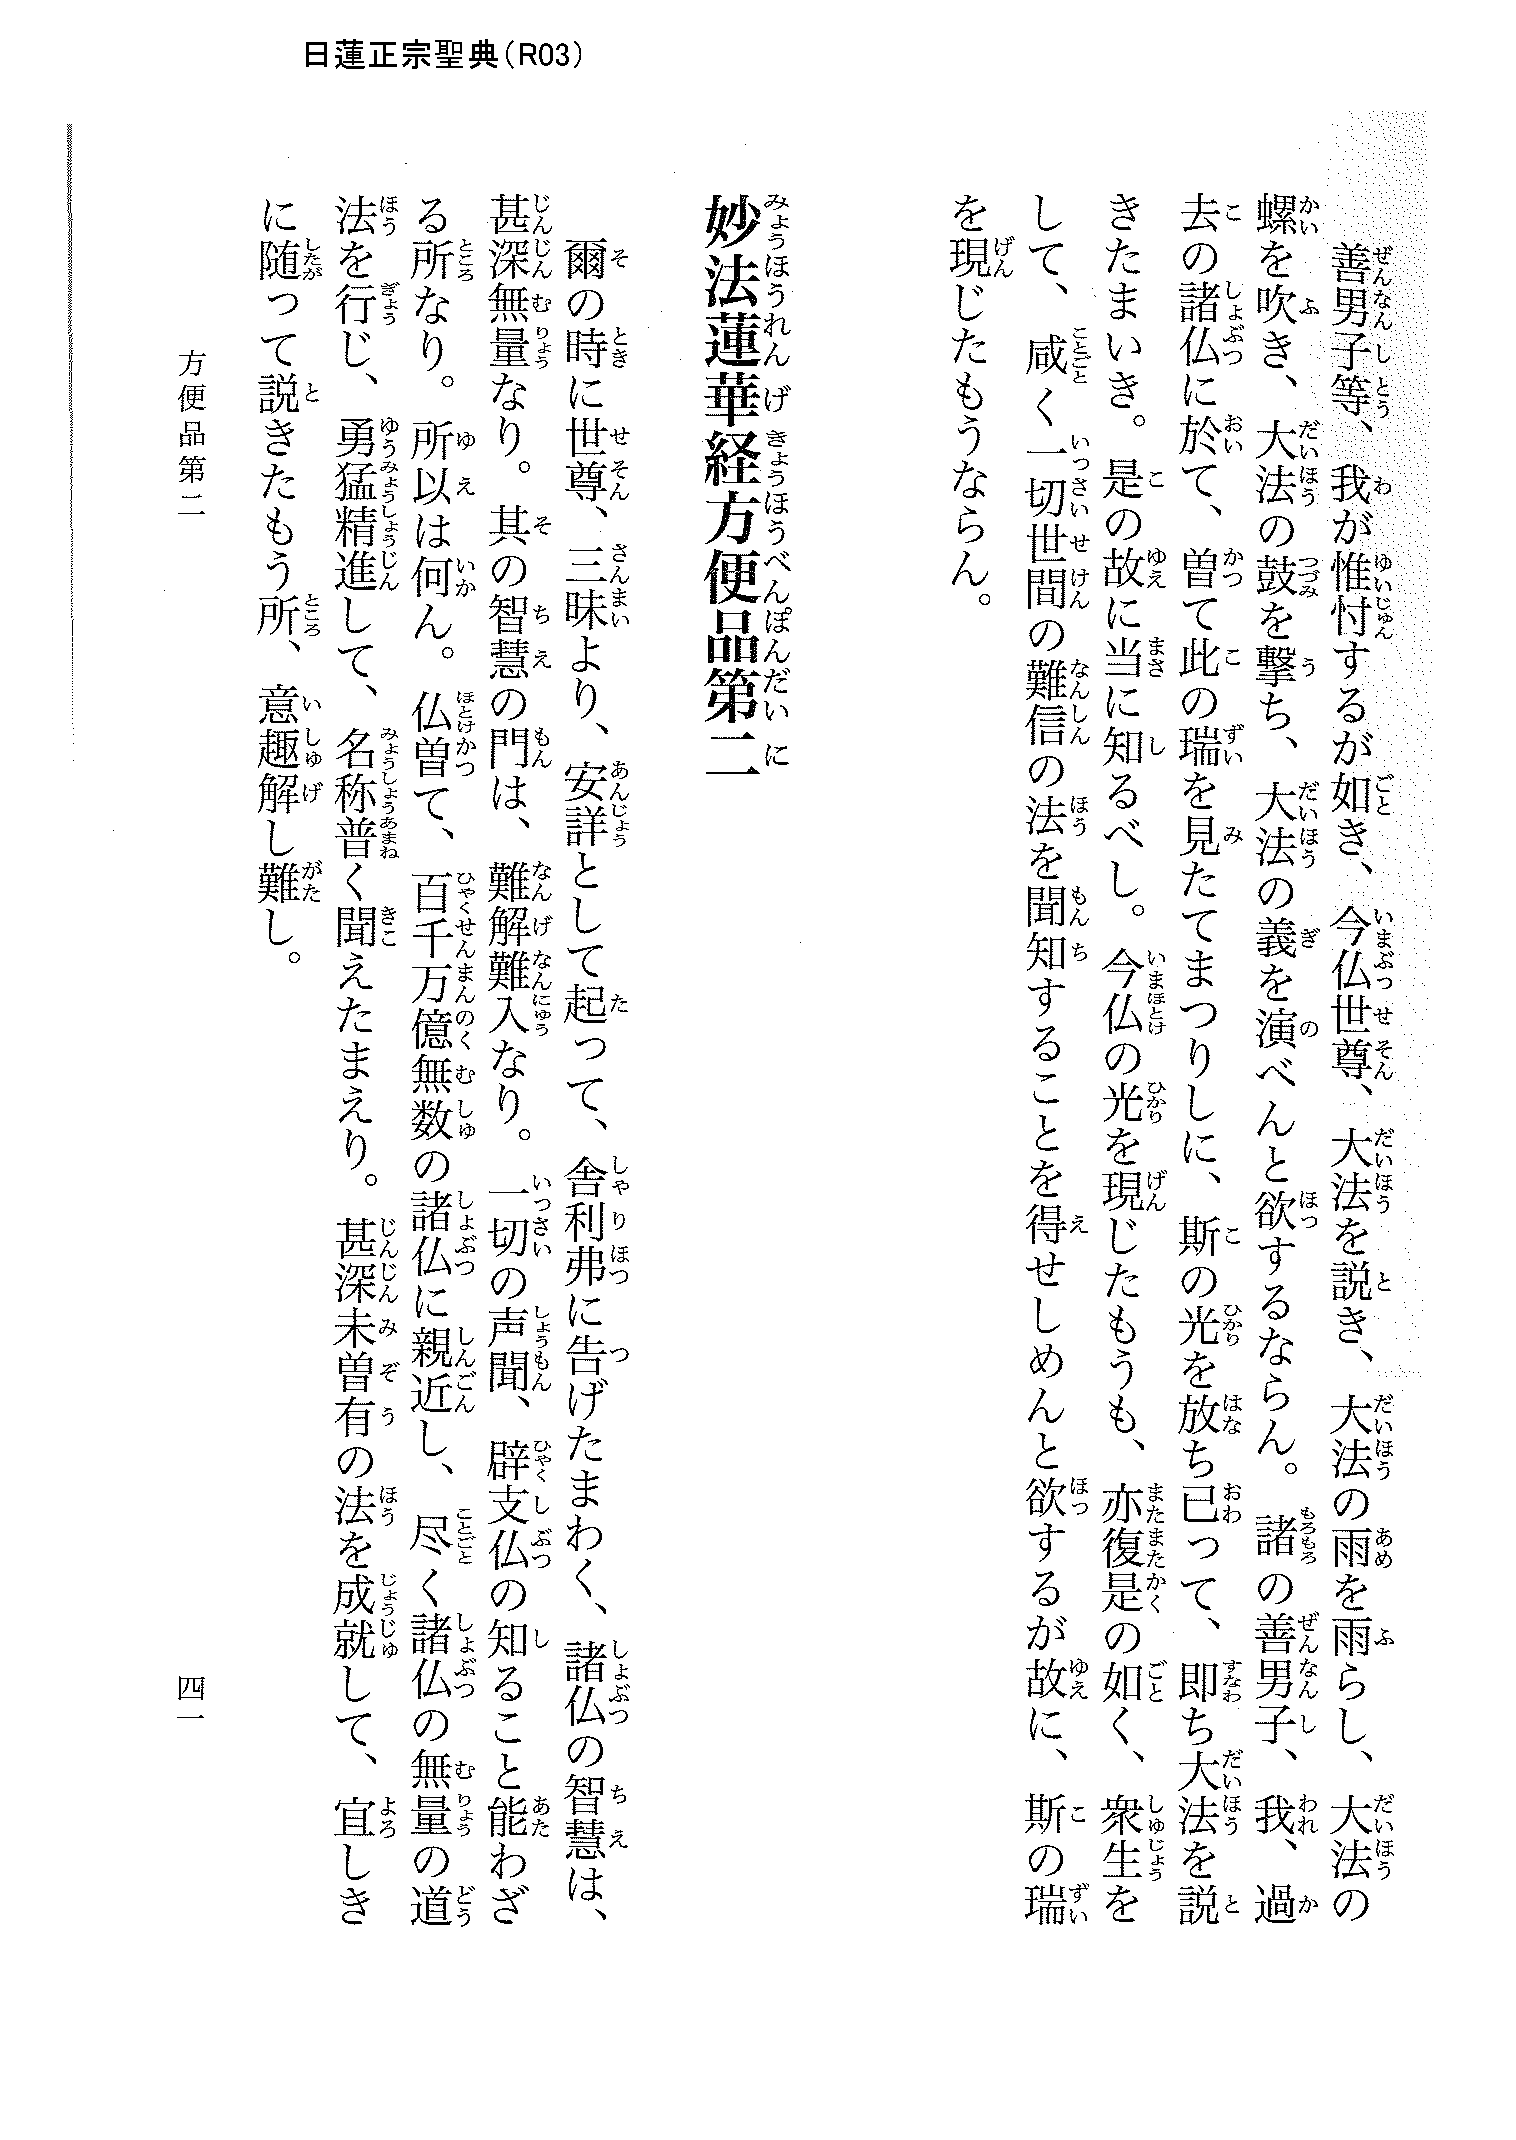 日蓮正宗聖典（R03）
善男子等、我が惟忖するが如き、今仏世尊、大法を説き、大法の雨を雨らし、大法の
螺を吹き、大法の鼓を撃ち、大法の義を演べんと欲するならん。諸の善男子、我、過
去の諸仏に於て、曽て此の瑞を見たてまつりしに、斯の光を放ち已って、即ち大法を説
きたまいき。是の故に当に知るべし。今仏の光を現じたもうも、亦復是の如く、衆生を
して、咸く一切世間の難信の法を聞知することを得せしめんと欲するが故に、斯の瑞
を現じたもうならん。
妙法蓮華経方便品第二
爾の時に世尊、三昧より、安詳として起って、舎利弗に告げたまわく、諸仏の智慧は、
甚深無量なり。其の智慧の門は、難解難入なり。一切の声聞、辟支仏の知ること能わざ
る所なり。所以は何ん。仏曽て、百千万億無数の諸仏に親近し、尽く諸仏の無量の道
法を行じ、勇猛精進して、名称普く聞えたまえり。甚深未曽有の法を成就して、宜しき
に随って説きたもう所、意趣解し難し。
方便品第二
四一